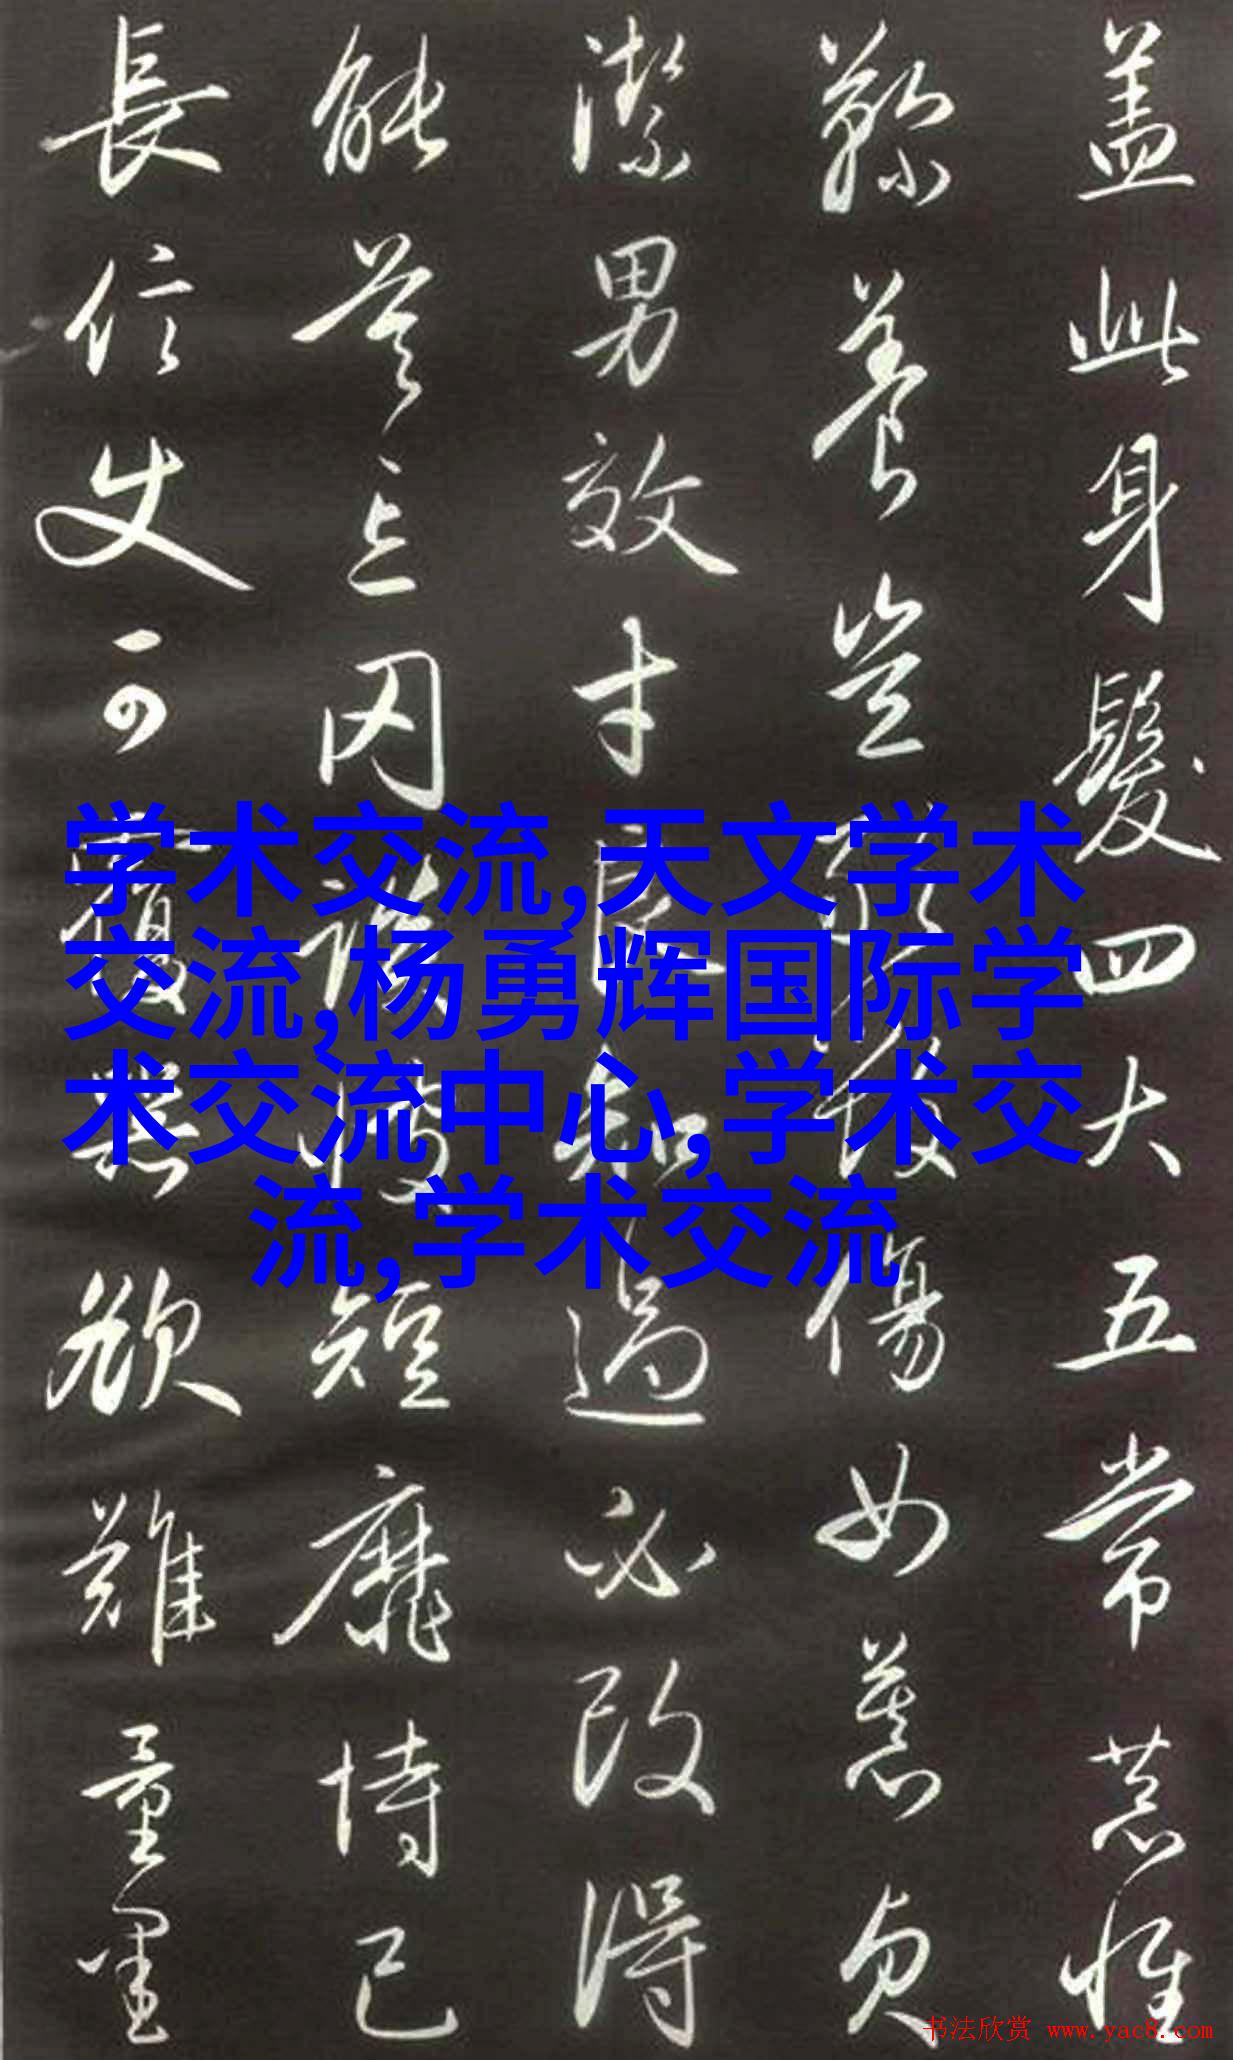 盖此身髮四大五常恭惟
鞠養豈敢毀傷女慕貞
潔男效才良知過必改得
能莫忘罔談彼短靡恃己
長信使可覆器欲難量墨
学术交流,天文学术
交流,杨勇辉国际学
术交流中心,学术交
流,学术交流
书法欣赏 www.yac8.com